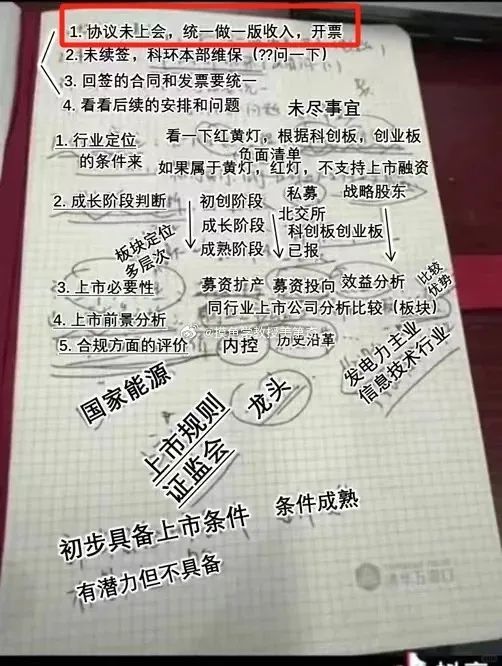 1. 协议未上会，统一做一版收入，开票
2. 未续签，科环本部维保（??问一下）
3. 回签的合同和发票要统一
4. 看看后续的安排和问题
未尽事宜
1. 行业定位的条件来
看一下红黄灯，根据科创板，创业板
负面清单
如果属于黄灯，红灯，不支持上市融资
2. 成长阶段判断
初创阶段
私募
战略股东
成长阶段
北交所
科创板创业板
成熟阶段
已报
板块定位
多层次
3. 上市必要性
募资扩产
募资投向
效益分析
比较优势
同行业上市公司分析比较（板块）
4. 上市前景分析
5. 合规方面的评价
内控
历史沿革
发电力主业
信息技术行业
国家能源
上市规则
证监会
龙头
初步具备上市条件
条件成熟
有潜力但不具备
清华五道口